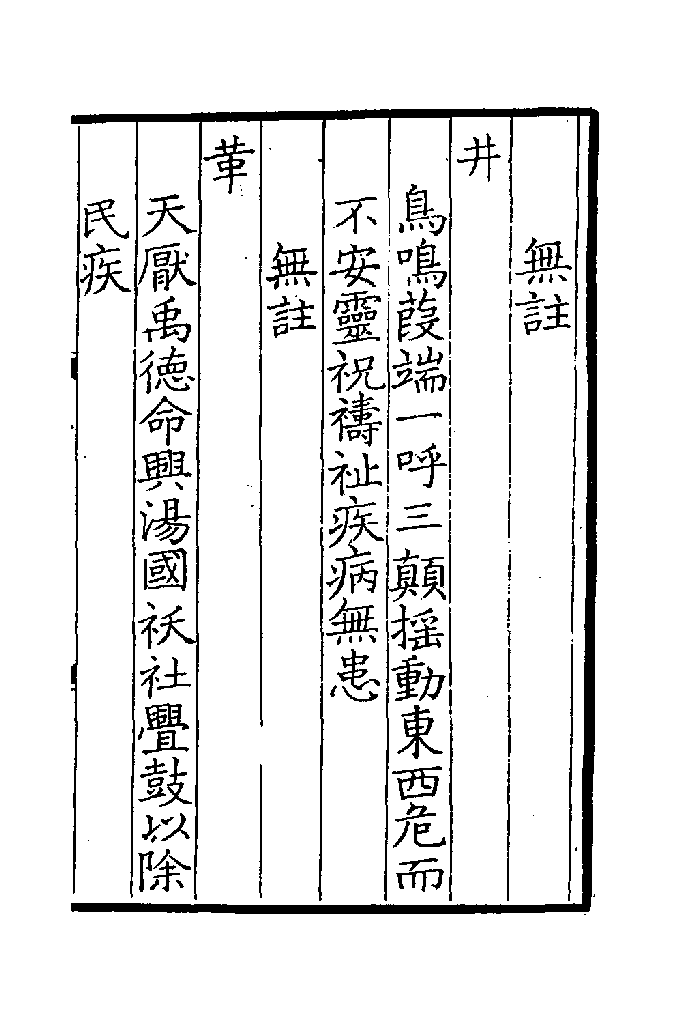 無註
井
鳥鳴葭端一呼三顛揺動東西危而
不安靈祝禱祉疾病無患
無註
革
天厭禹德命興湯國祅社舋鼓以除
民疾